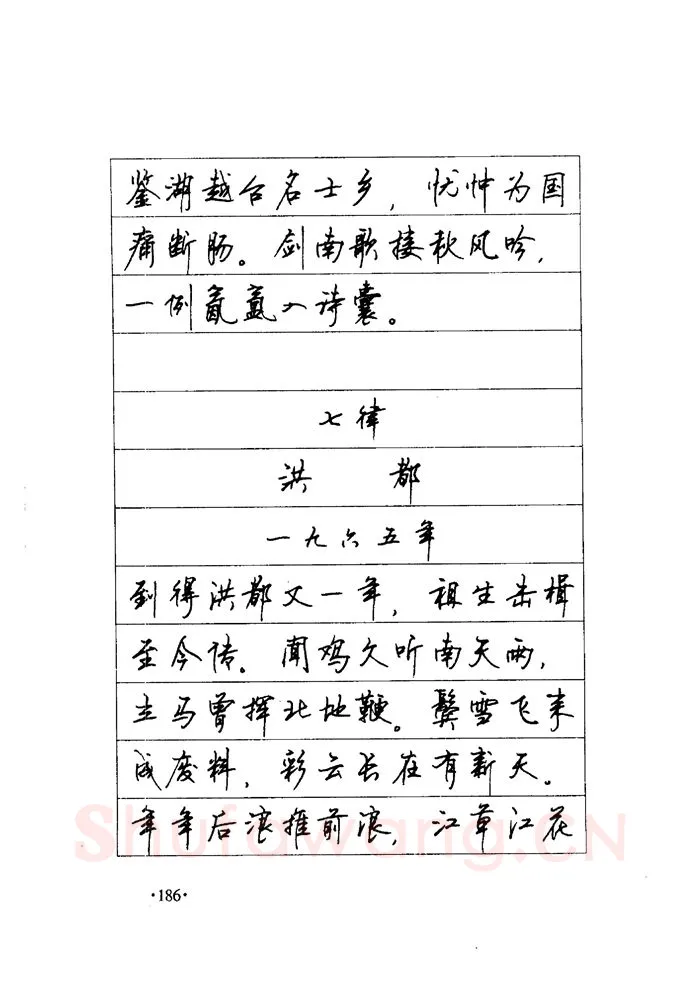 鉴湖越台名士乡，忧忡为国
痛断肠。剑南歌接秋风吟，
一例氤氲入诗囊。
七律
洪 都
一九六五年
到得洪都又一年，祖生击楫
至今传。闻鸡久听南天雨，
立马曾挥北地鞭。鬓雪飞来
成废料，彩云长在有新天。
年年后浪推前浪，江草江花
Shufawang.CN
·186·